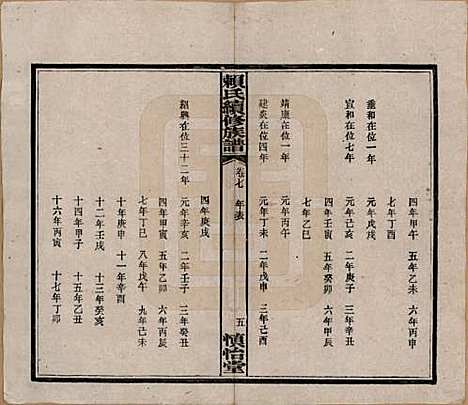 四年甲午　五年乙未　六年丙申
七年丁酉
重和在位一年　元年戊戌
宣和在位七年　元年己亥　二年庚子　三年辛丑
四年壬寅　五年癸卯　六年甲辰
七年乙巳
靖康在位一年　元年丙午
建炎在位四年　元年丁未　二年戊申　三年己酉
賴氏續修族譜　卷七　年表　五　慎怡堂
四年庚戌
紹興在位三十二年　元年辛亥　二年壬子　三年癸丑
四年甲寅　五年乙卯　六年丙辰
七年丁巳　八年戊午　九年己未
十年庚申　十一年辛酉
十二年壬戌　十三年癸亥
十四年甲子　十五年乙丑
十六年丙寅　十七年丁卯